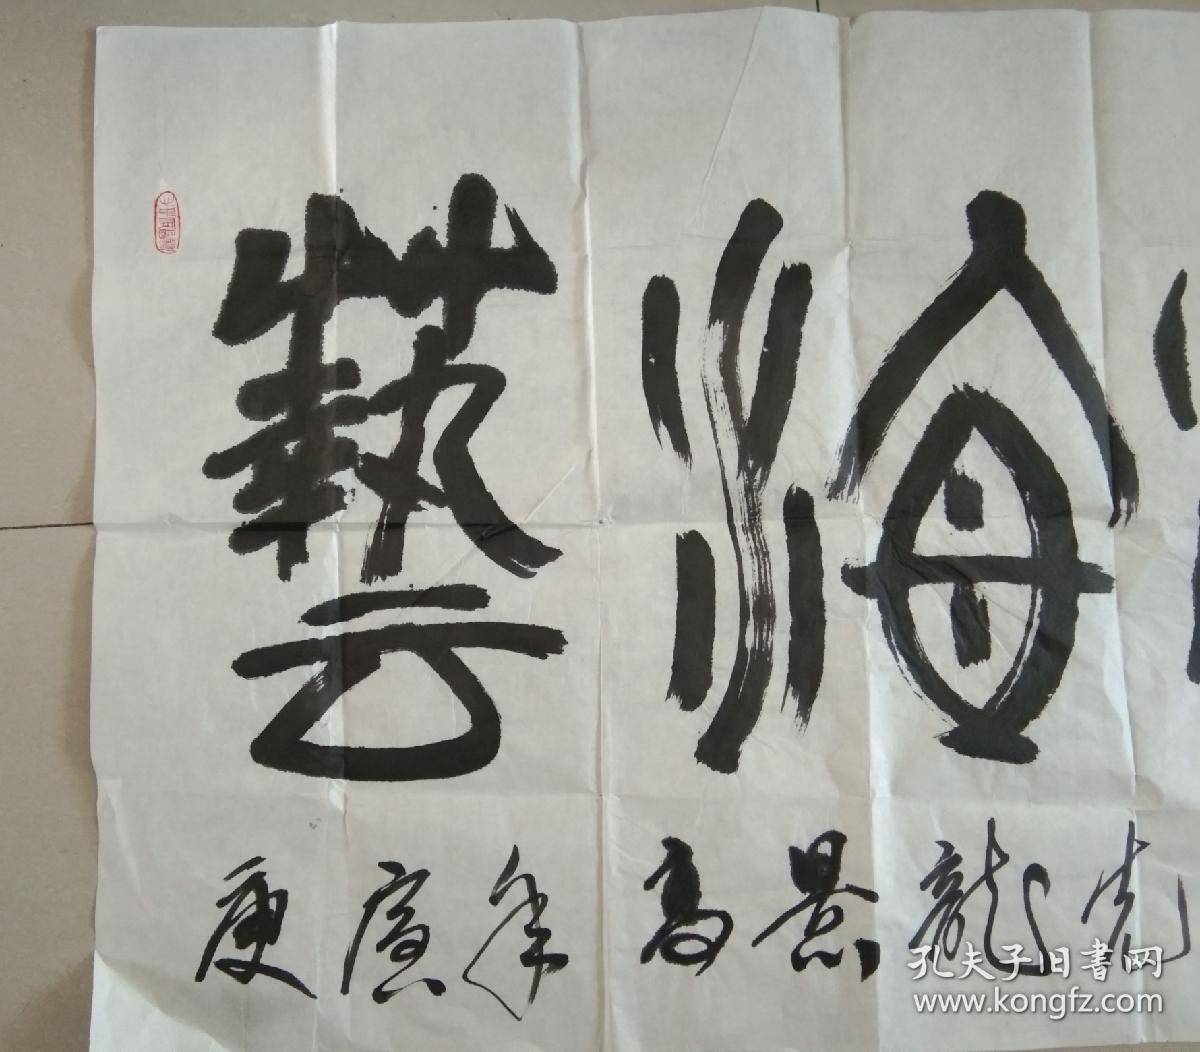 藝海
庚寅年高景龍先
孔夫子旧書网
www.kongfz.com